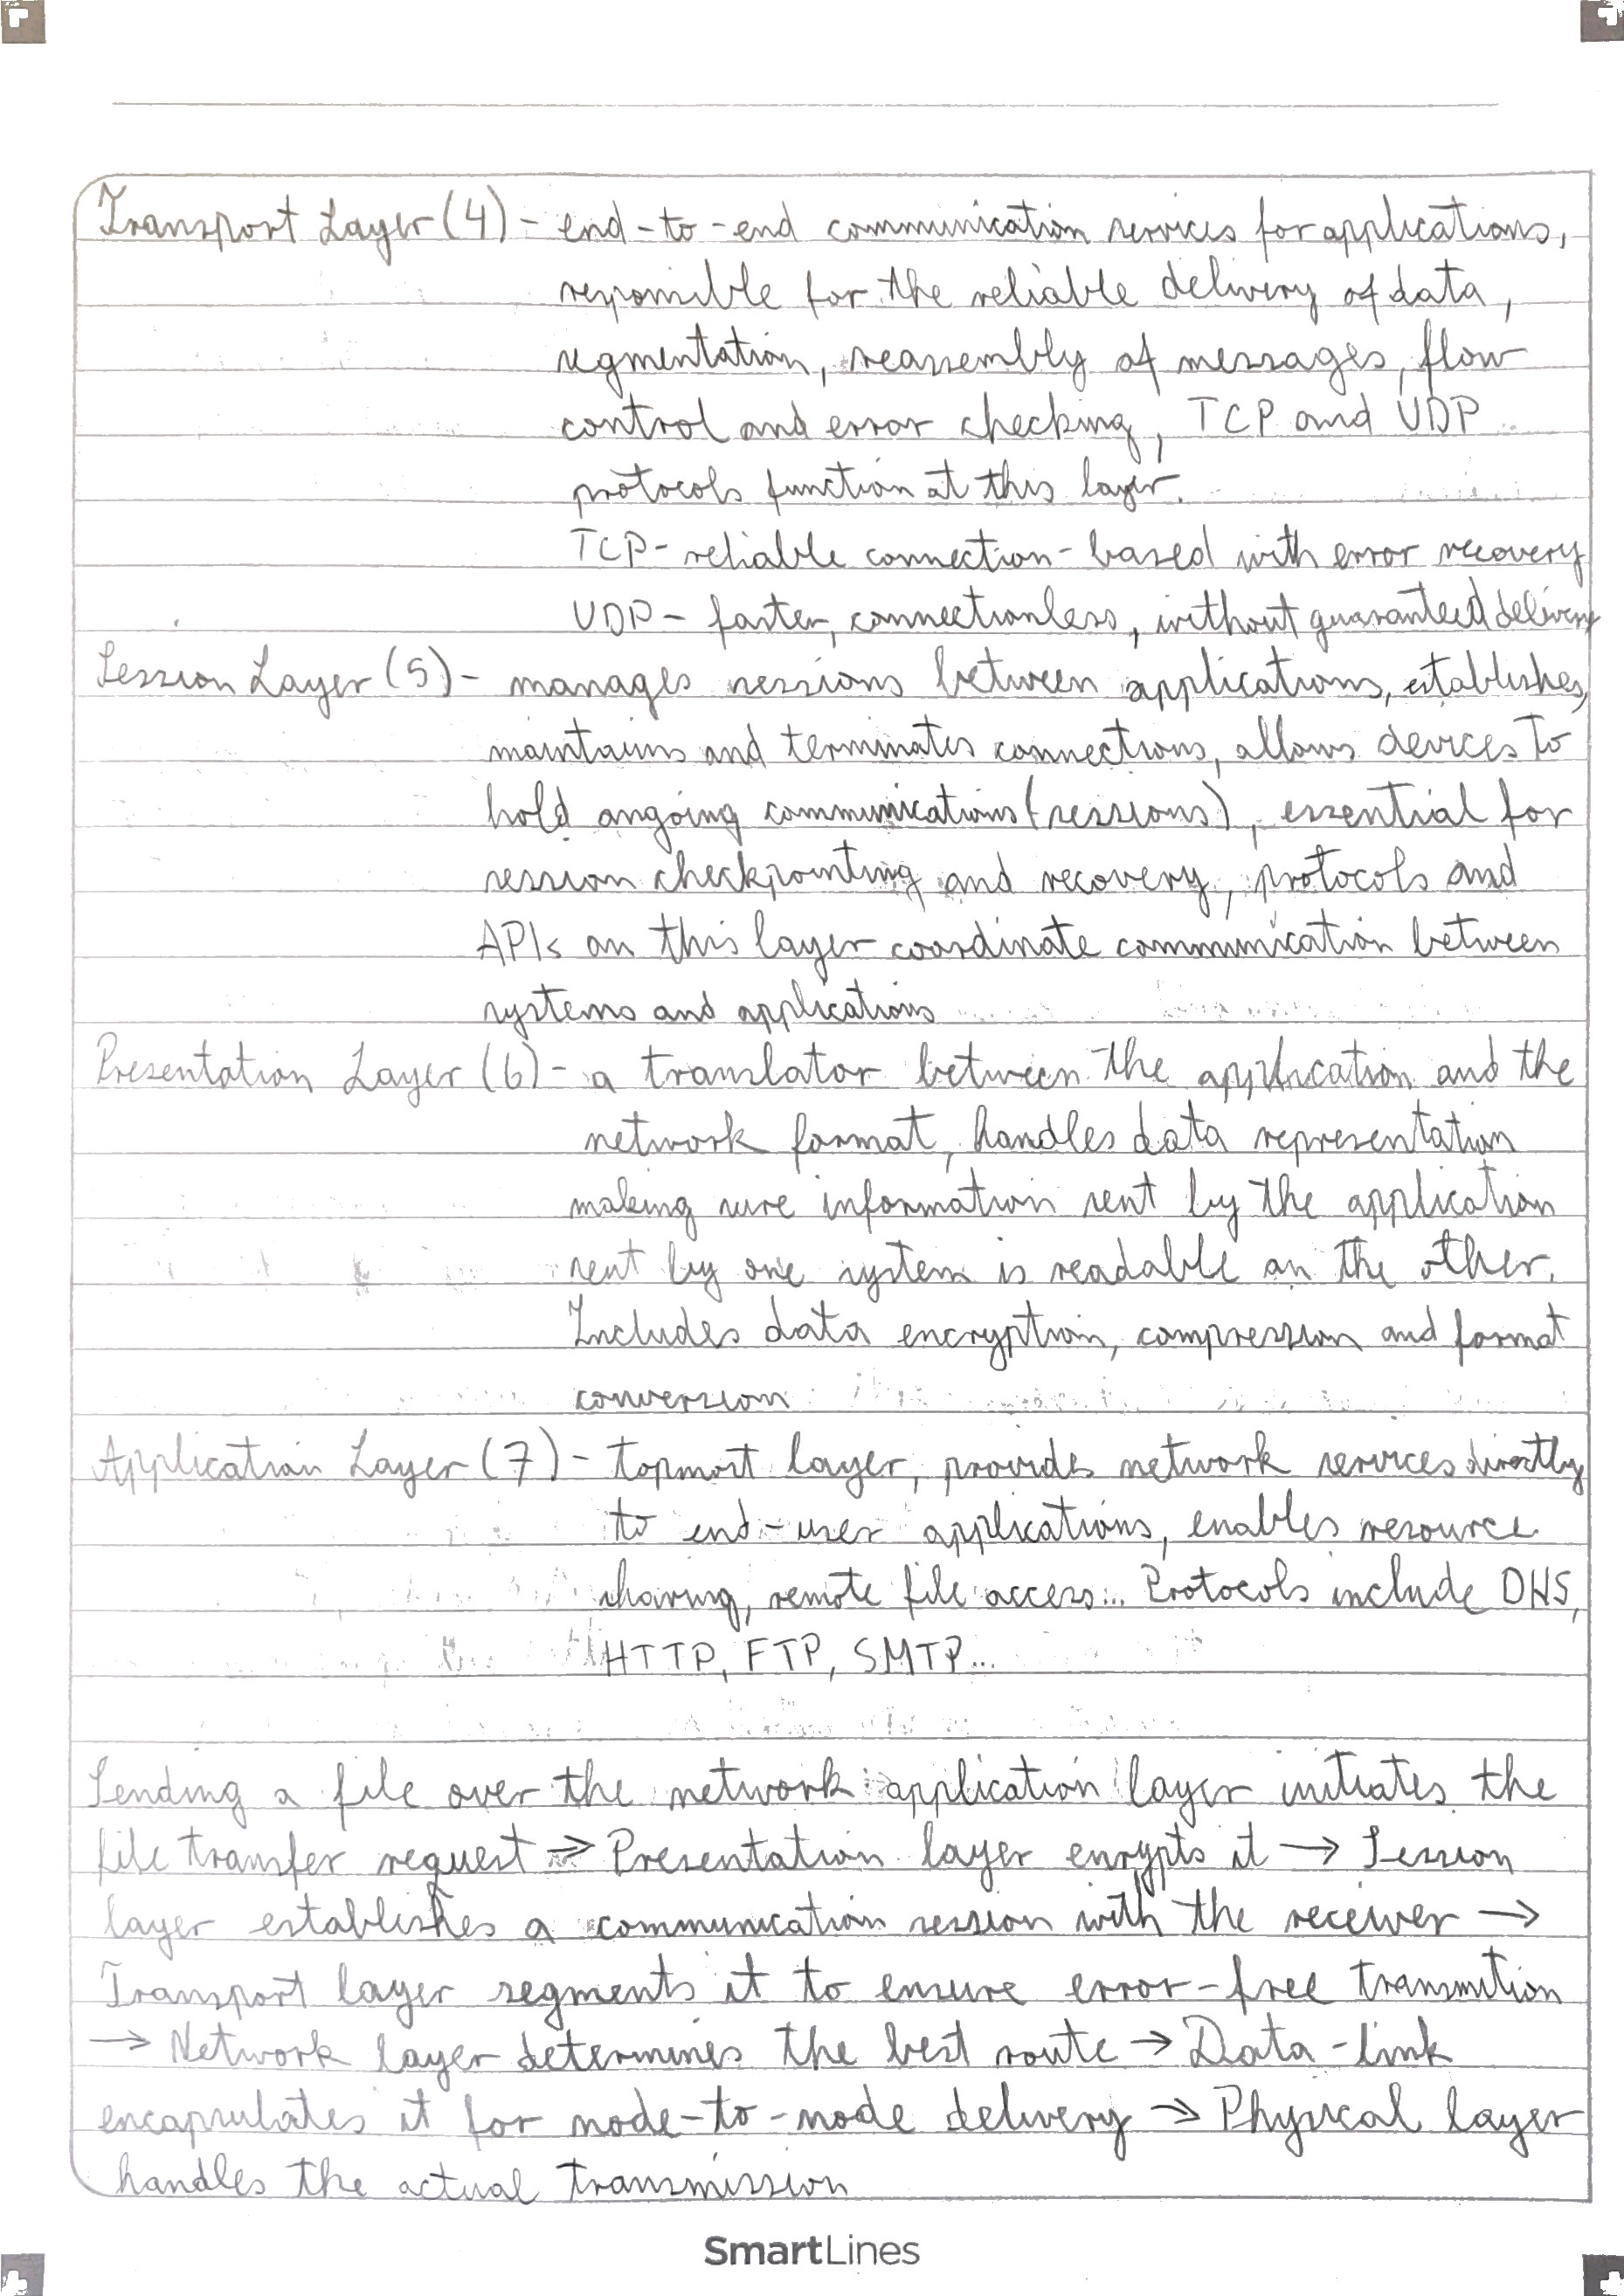 Transport Layer (4) - end-to-end communication services for applications,
responsible for the reliable delivery of data,
segmentation, reassembly of messages, flow
control and error checking, TCP and UDP
protocols function at this layer.
TCP - reliable connection-based with error recovery
UDP - faster, connectionless, without guaranteed delivery
Session Layer (5) - manages sessions between applications, establishes,
maintains and terminates connections, allows devices to
hold ongoing communications (sessions), essential for
session checkpointing and recovery, protocols and
APIs on this layer coordinate communication between
systems and applications
Presentation Layer (6) - a translator between the application and the
network format, handles data representation
making sure information sent by the application
sent by one system is readable on the other.
Includes data encryption, compression and format
conversion
Application Layer (7) - topmost layer, provides network services directly
to end-user applications, enables resource
sharing, remote file access... Protocols include DNS,
HTTP, FTP, SMTP...
Sending a file over the network: application layer initiates the
file transfer request → Presentation layer enrypts it → Session
layer establishes a communication session with the receiver →
Transport layer segments it to ensure error-free transmition
→ Network layer determines the best route → Data-link
encapsulates it for node-to-node delivery → Physical layer
handles the actual transmission
SmartLines